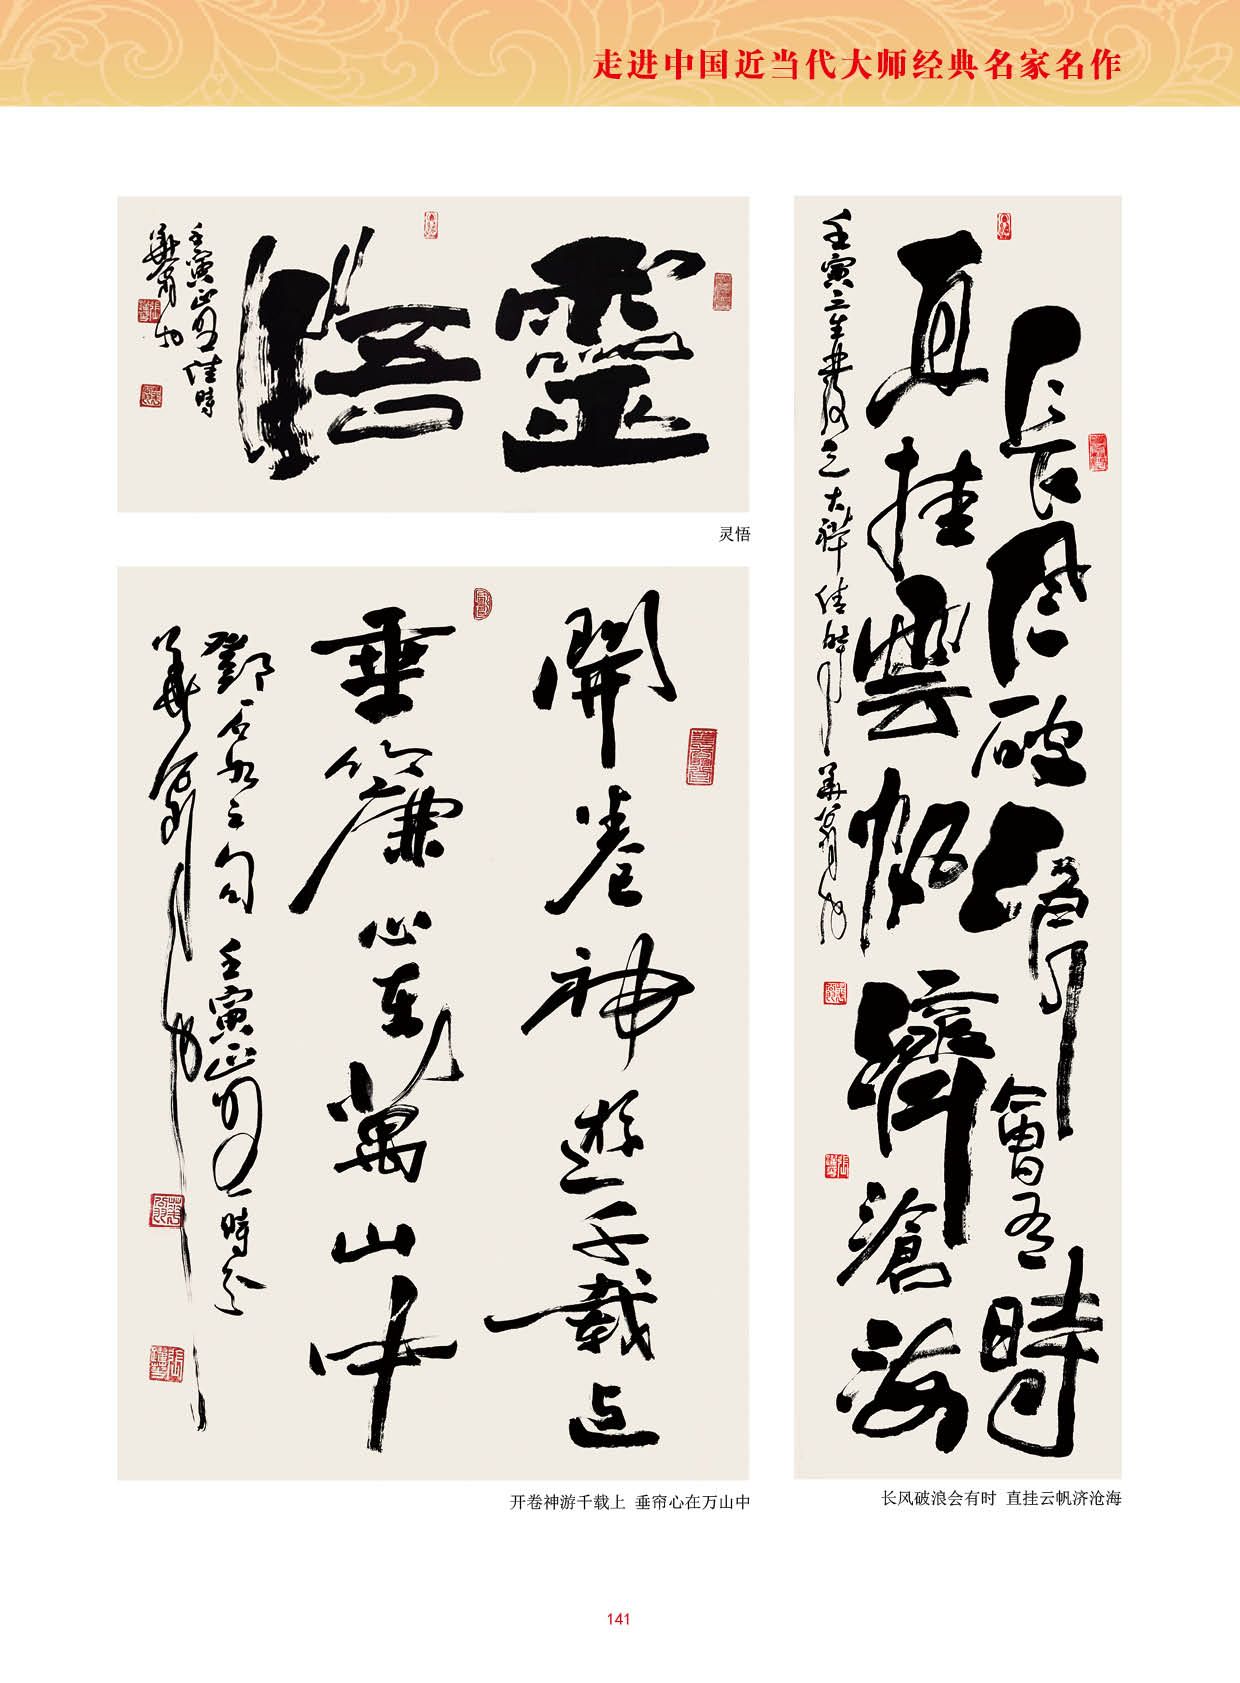 走进中国近当代大师经典名家名作
靈悟
壬寅正月佳時
灵悟
開卷神遊千載上
垂簾心在萬山中
鄧石如之句 壬寅正月一時念
开卷神游千载上 垂帘心在万山中
長风破浪會有時
直挂雲帆濟滄海
长风破浪会有时 直挂云帆济沧海
141